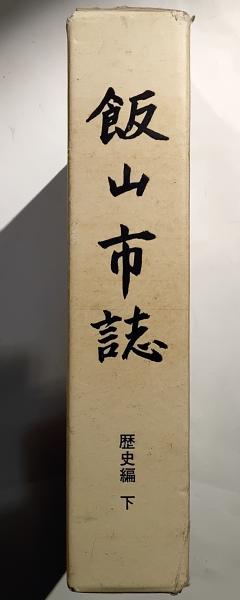 飯山市誌
歴史編 下